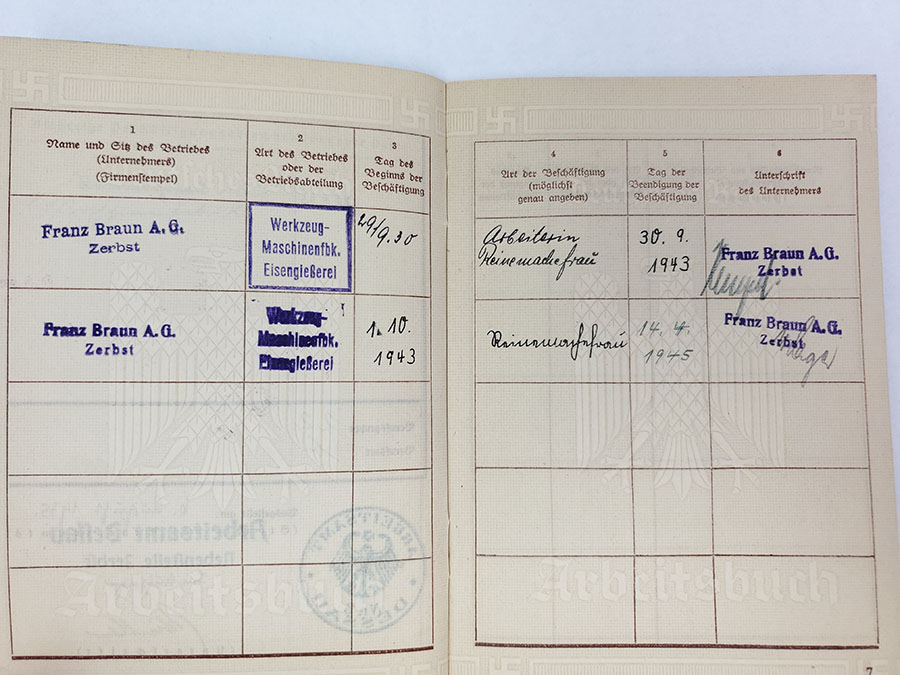 1
Name und Sitz des Betriebes
(Unternehmers)
(Firmenstempel)
2
Art des Betriebes
oder der
Betriebsabteilung
3
Tag des
Beginns der
Beschäftigung
4
Art der Beschäftigung
(möglichst
genau angeben)
5
Tag der
Beendigung der
Beschäftigung
6
Unterschrift
des Unternehmers
Franz Braun A.G.
Zerbst
Werkzeug-
Maschinenfbk.
Eisengießerei
29/9.30
Arbeiterin
Reinemachefrau
30. 9.
1943
Franz Braun A.G.
Zerbst
Franz Braun A.G.
Zerbst
Werkzeug-
Maschinenfbk.
Eisengießerei
1. 10.
1943
Reinemachefrau
14. 4.
1945
Franz Braun A.G.
Zerbst
Arbeitsamt Dessau
Nebenstelle Zerbst
ARBEITSAMT
DESSAU
Arbeitsbuch
Arbeitsbuch
7